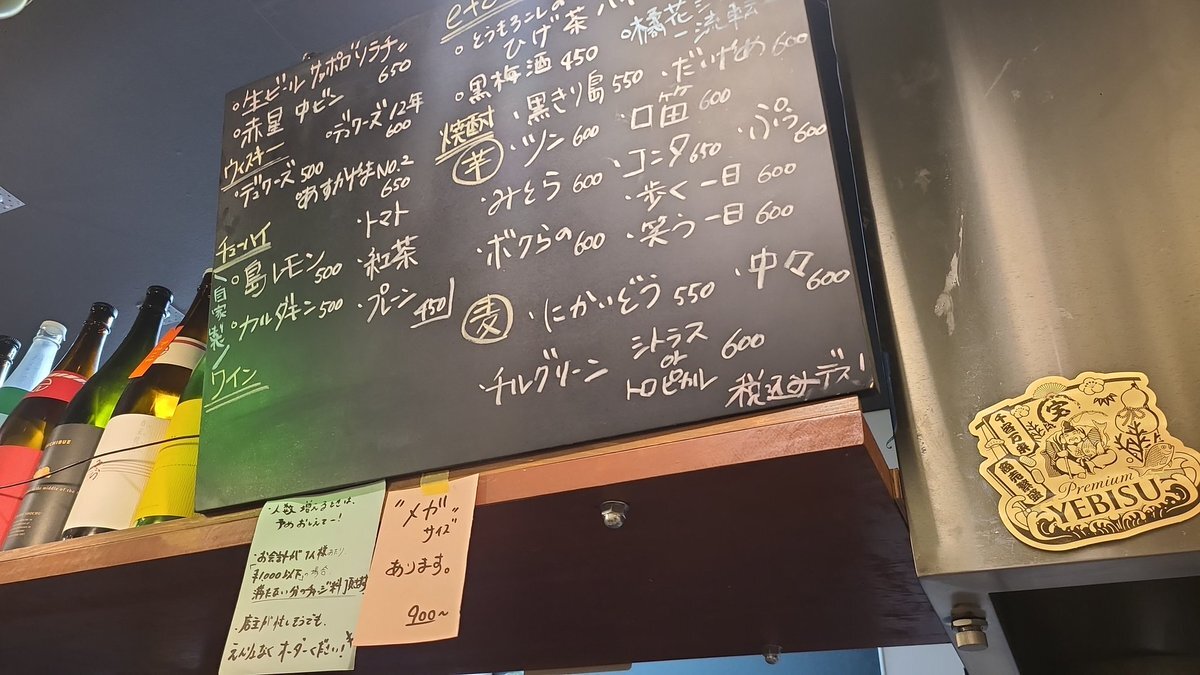 ・生ビール サッポロソラチ 650
・赤星 中ビン
ウィスキー
・デュワーズ 500
・デュワーズ12年 600
・あすかやまNo.2 650
チューハイ
〈自家製〉
・島レモン 500
・カルダモン 500
・トマト
・紅茶
・プレーン 450
ワイン
etc
・とうもろこしの
ひげ茶ハイ
・黒梅酒 450
橘花ジン
一流転
焼酎
・黒きり島 550
・だいやめ 600
芋
・ツン 600
・口笛 600
・みそら 600
・コニタ 650
・ぷう 600
・ボクらの 600
・歩く一日 600
・笑う一日 600
麦
・にかいどう 550
・中々 600
・チルグリーン シトラス or トロピカル 600
税込みデス!
・人数増えるときは、
予めおしえてー!
・お会計が1人様あたり
「¥1000以下」の場合
満たない分チャージ料頂戴
・店主が忙しそうでも、
えんりょなくオーダーください!
"メガ"
サイズ
あります。
900~
宝
千客万来
商売繁盛
Premium
YEBISU